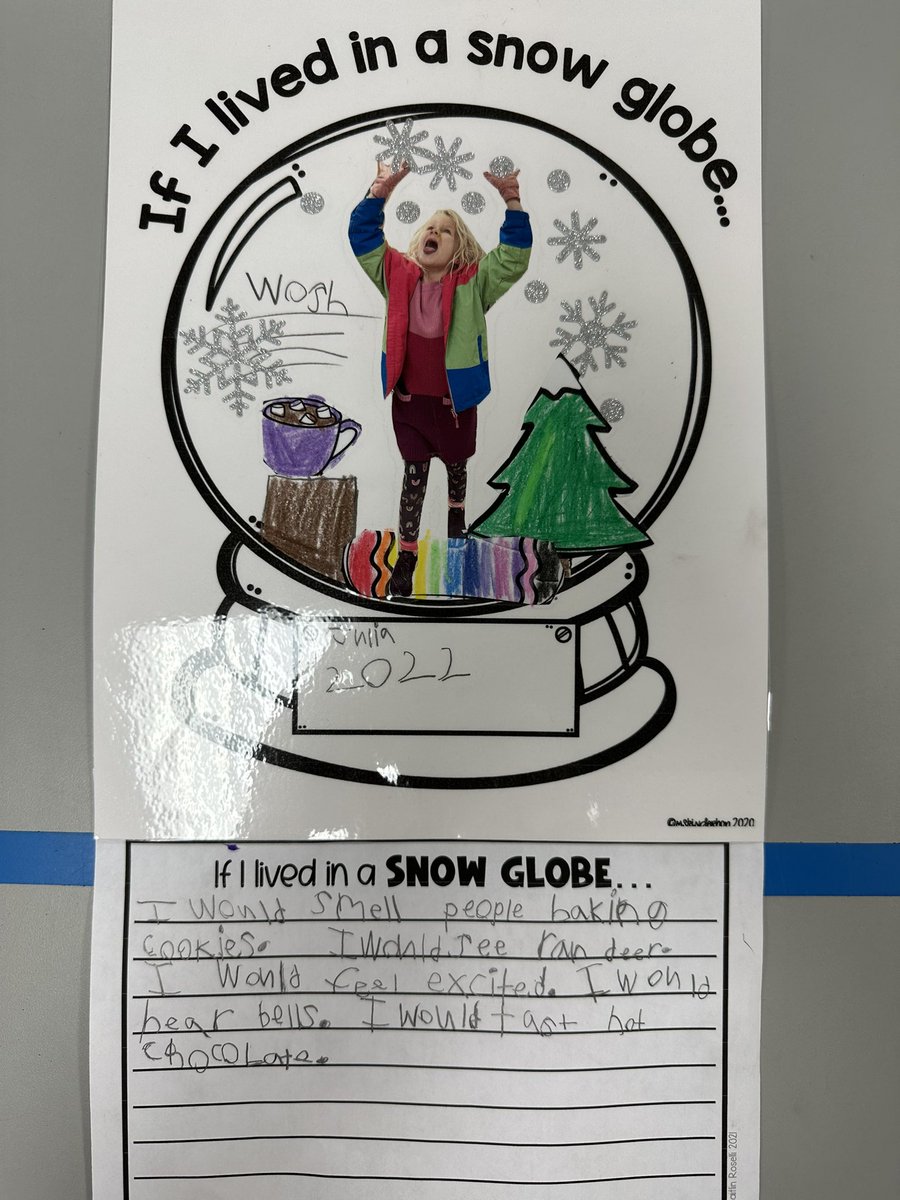 If I lived in a snow globe...
Wosh
2022
If I lived in a SNOW GLOBE...
I Would smell people baking
cookies. I Would see ran deer.
I Would feel excited. I Would
hear bells. I Would tast hot
chocolate.